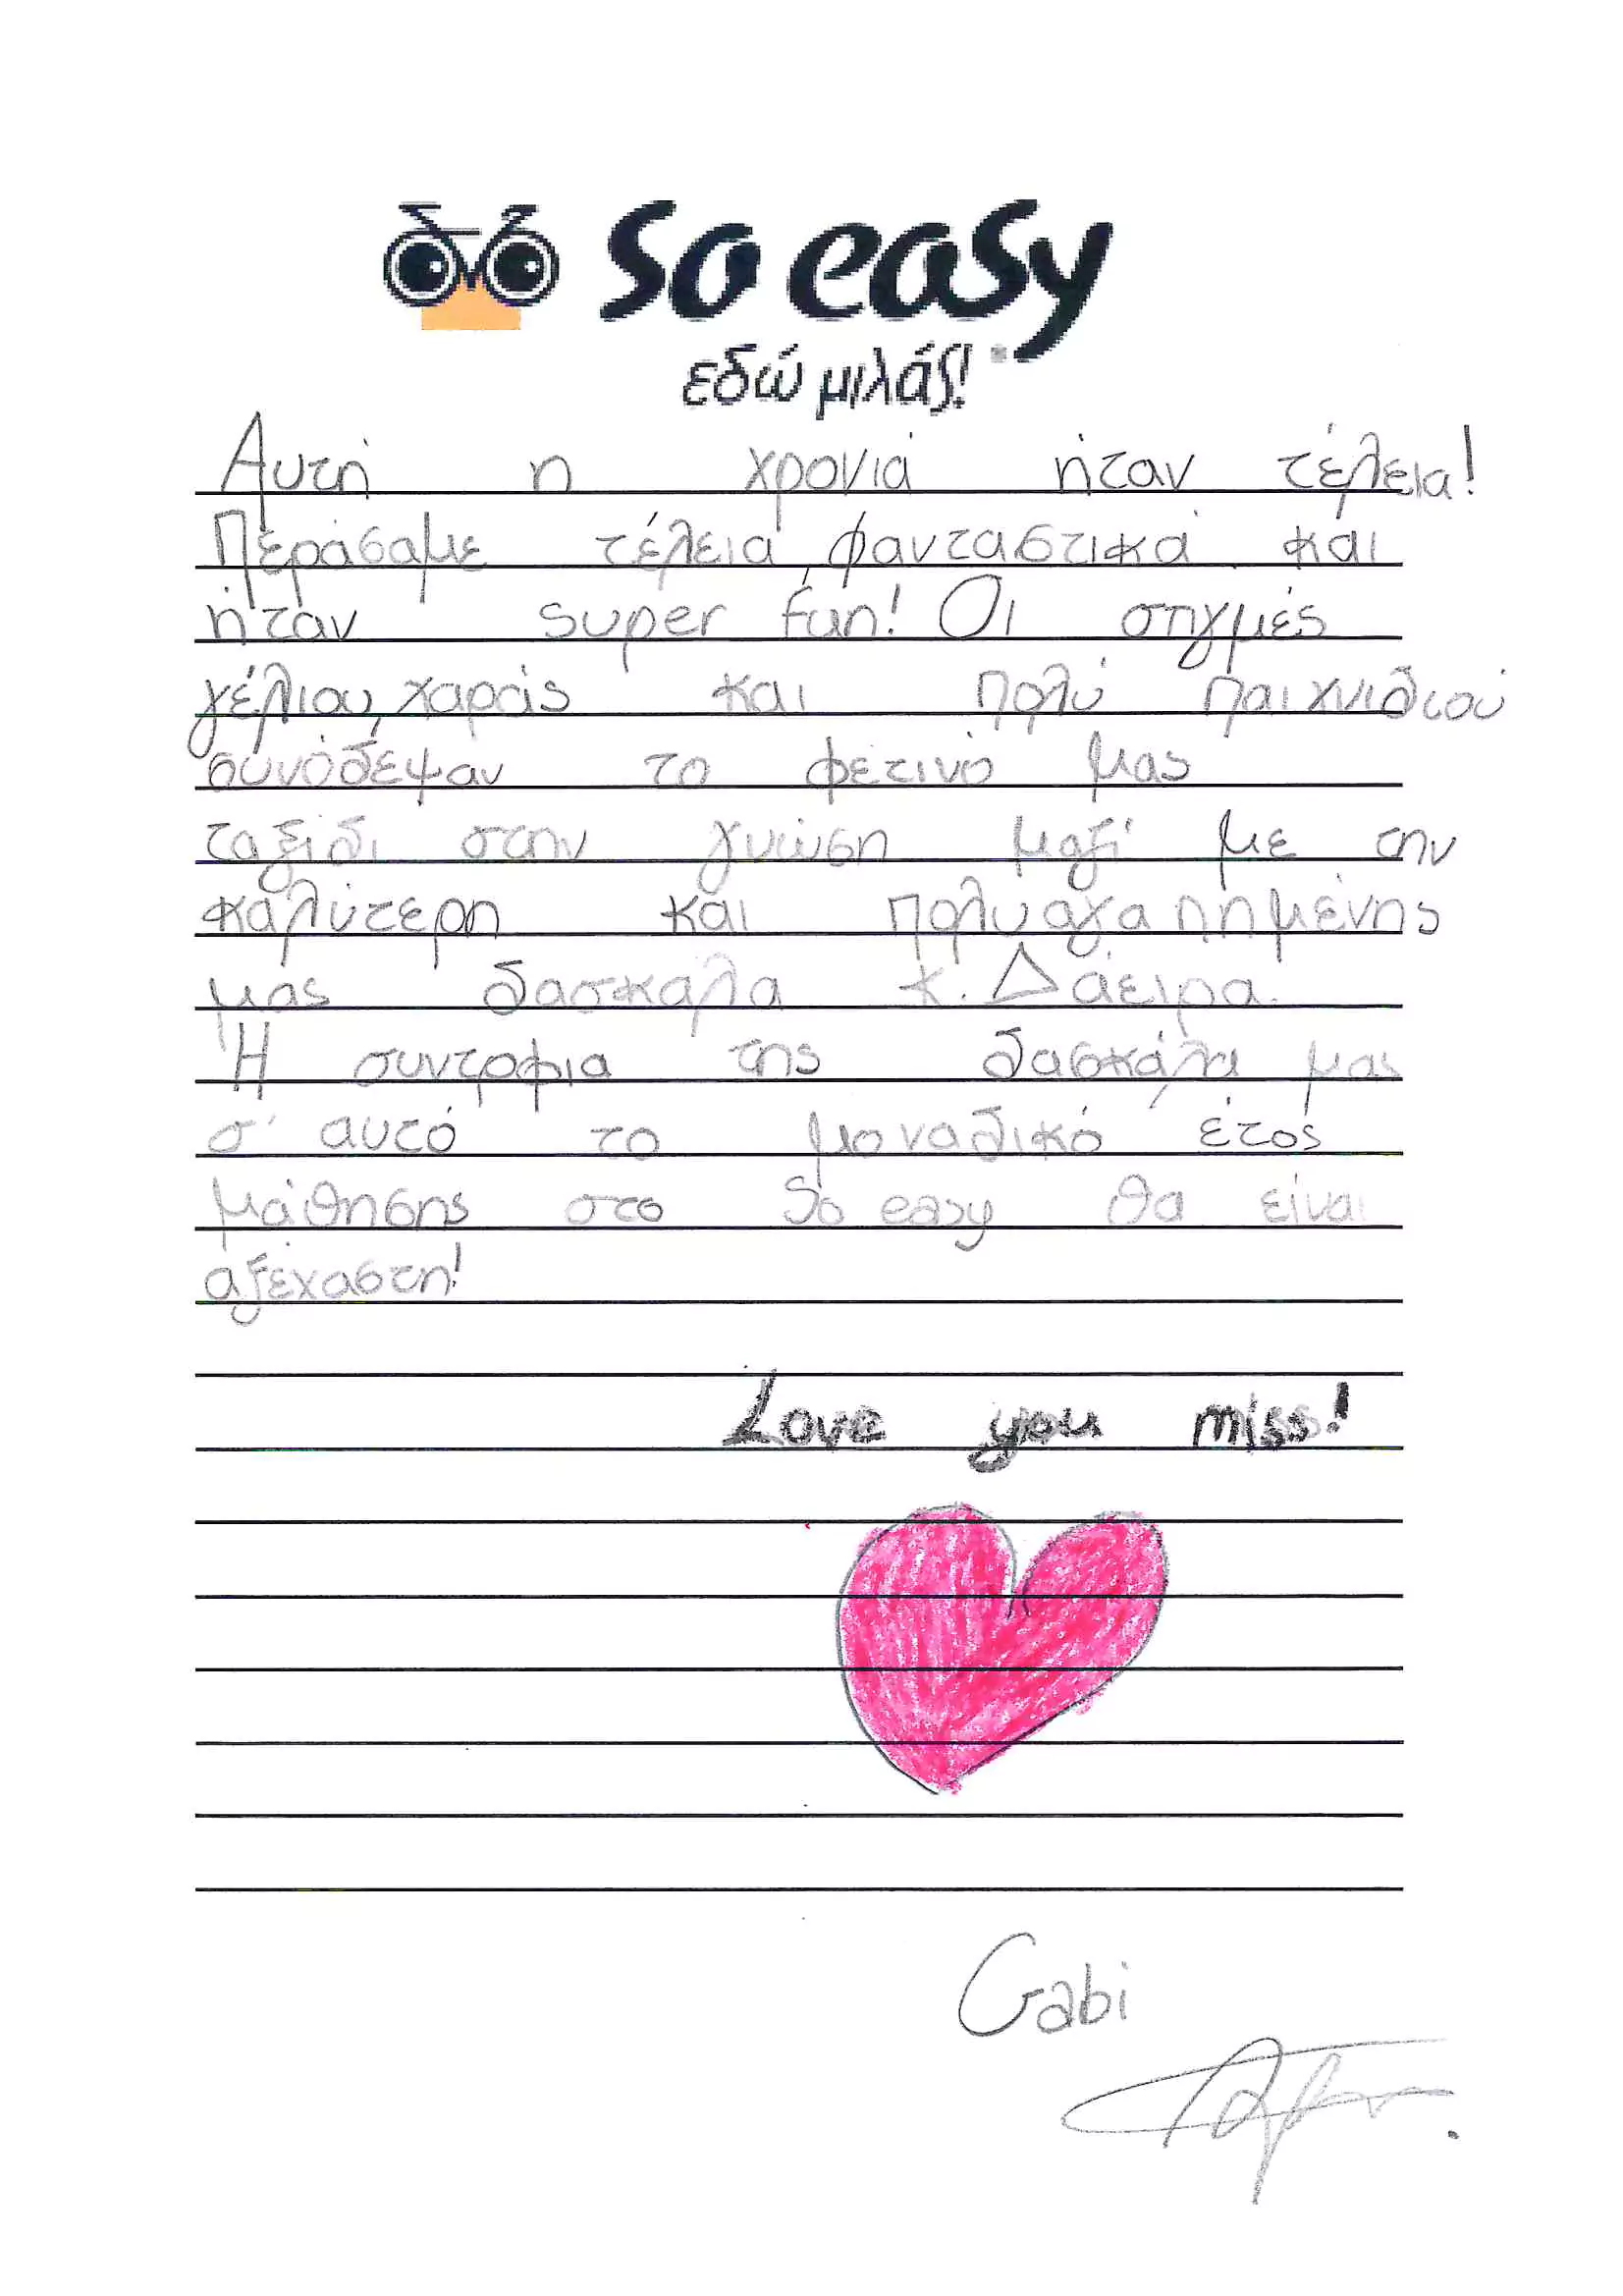 so easy
εδώ μιλάς!
Αυτή η χρονιά ήταν τέλεια!
Περάσαμε τέλεια, φανταστικά και
ήταν super fun! Οι στιγμές
γέλιου, χαράς και πολύ παιχνιδιού
συνόδεψαν το φετινό μας
ταξίδι στην γνώση μαζί με την
καλύτερη και πολυαγαπημένης
μας δασκάλα κ. Δάειρα.
Η συντροφια της δασκάλα μας
σ' αυτό το μοναδικό έτος
μάθησης στο So easy θα είναι
αξέχαστη!
Love you miss!
Gabi